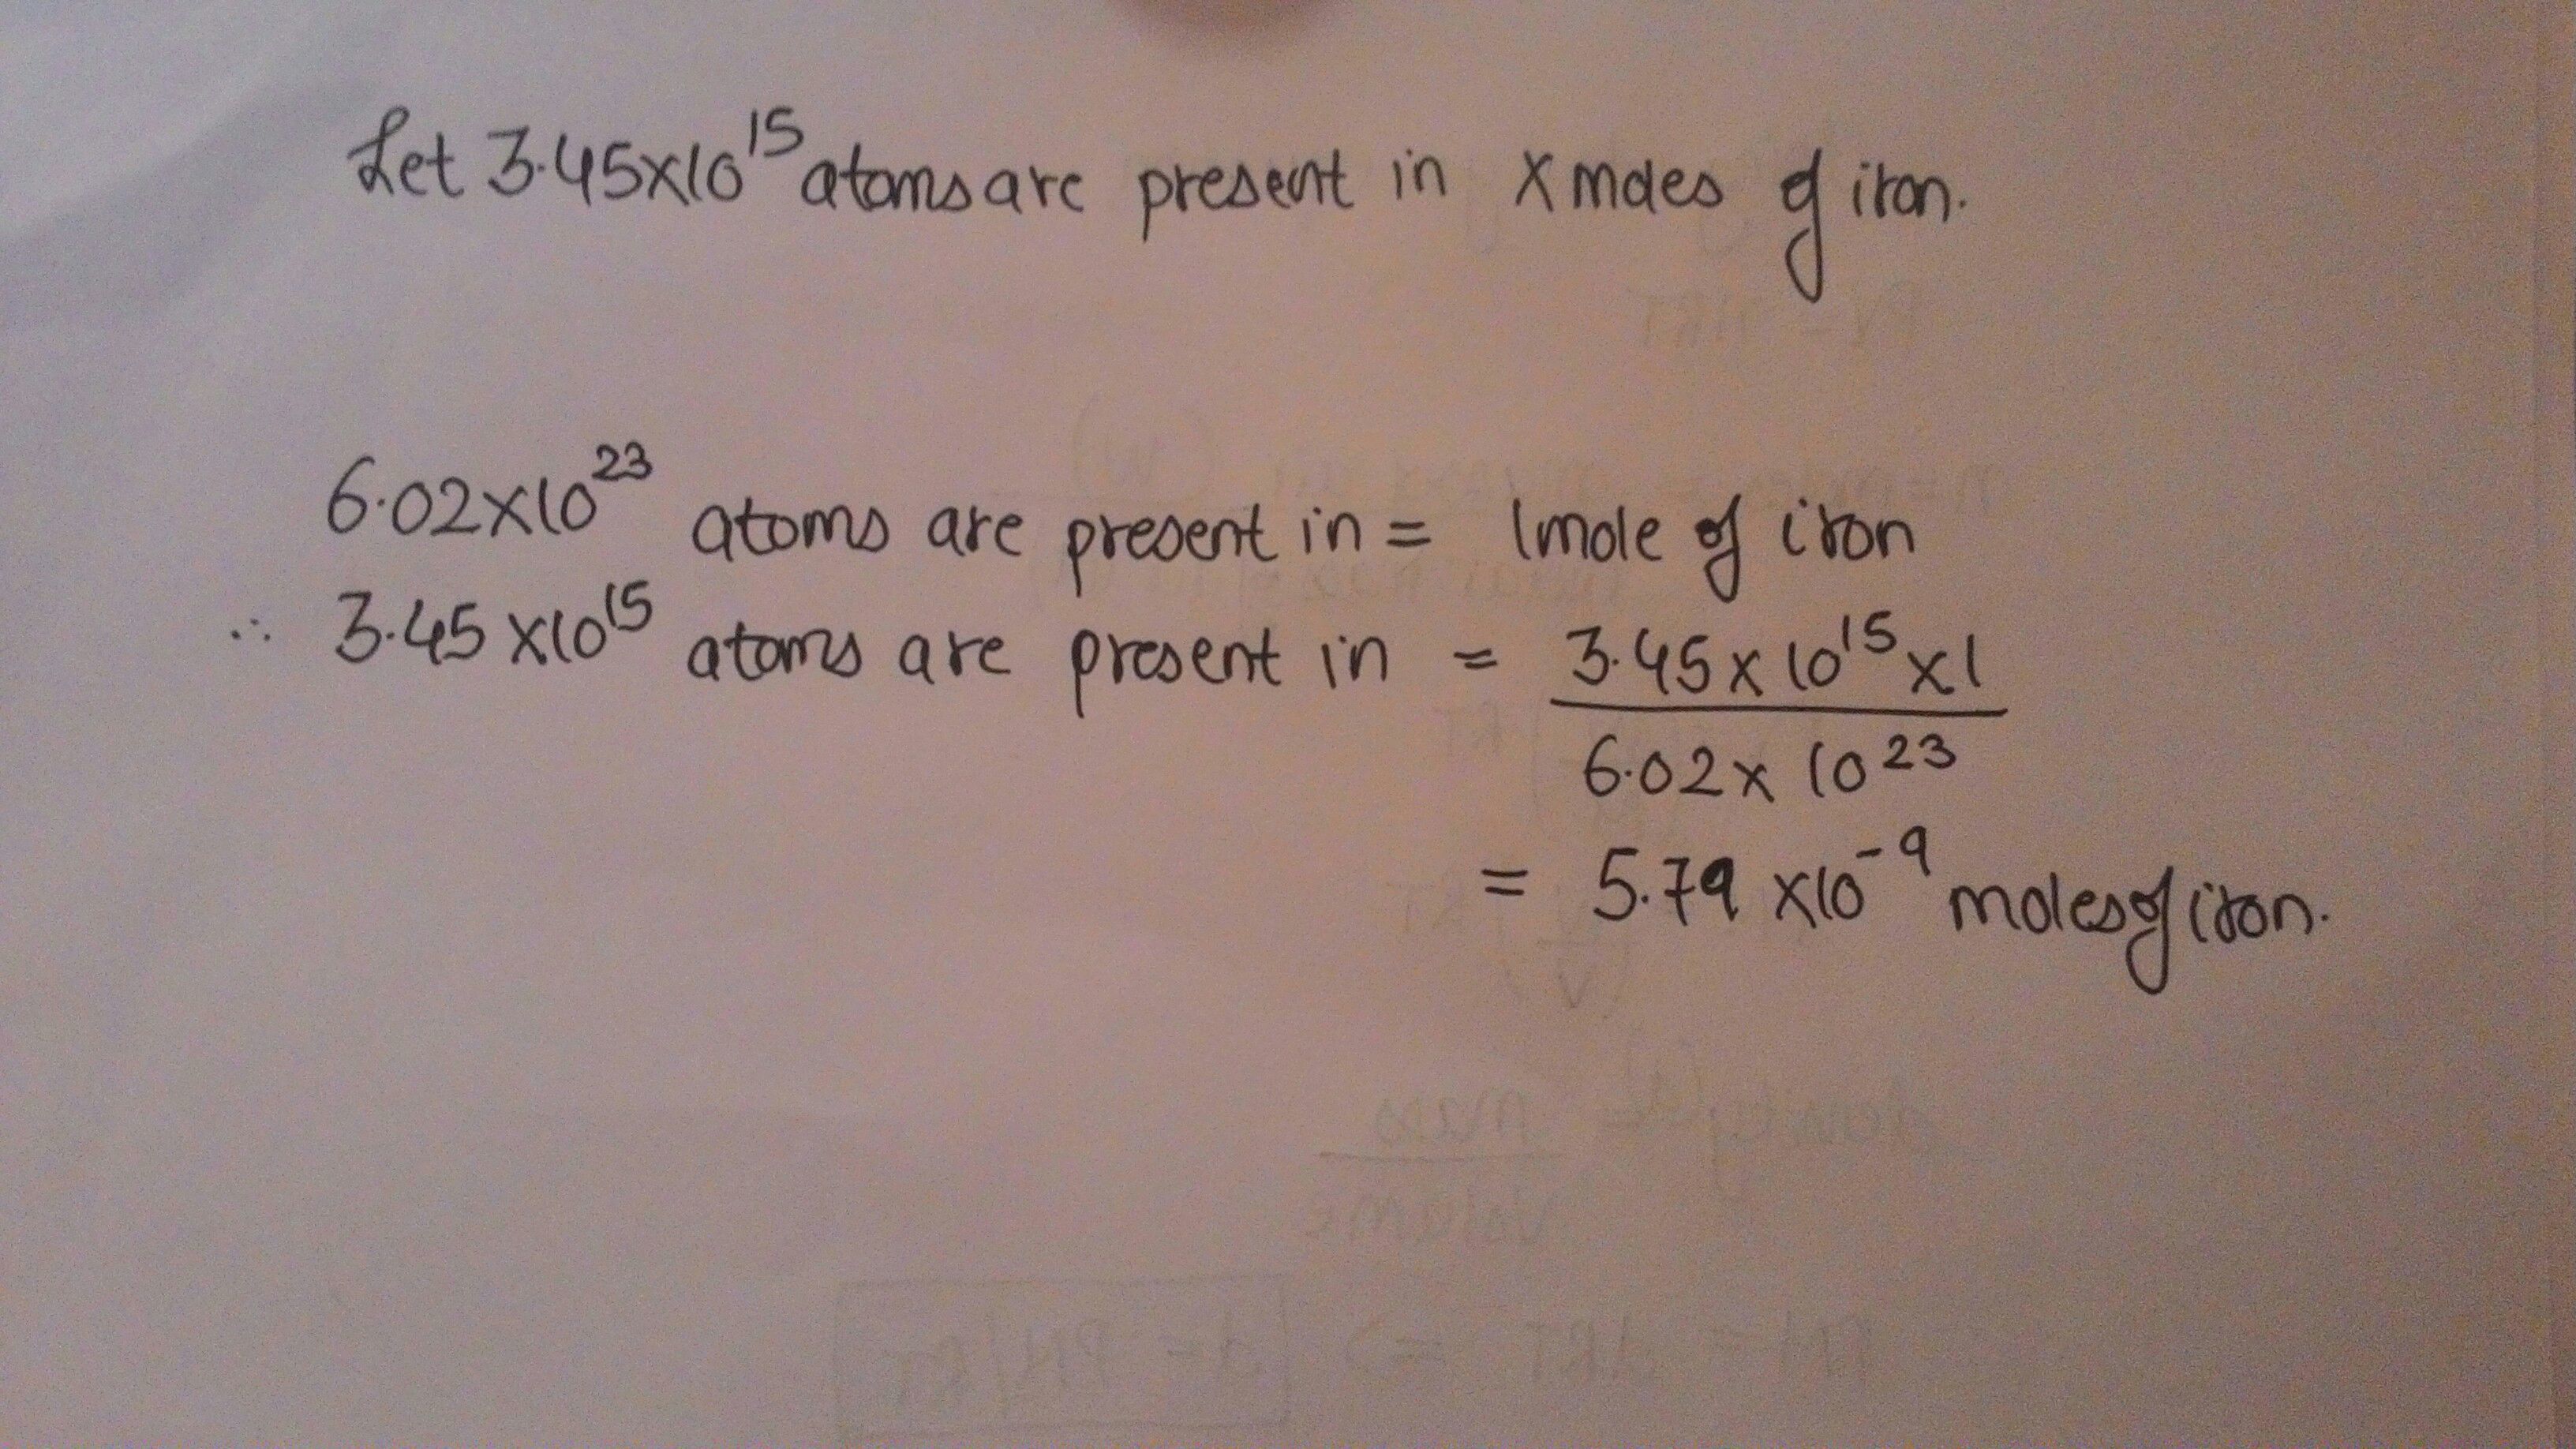 Let 3.45x10¹⁵ atoms are present in x moles of iron.
6.02x10²³ atoms are present in = 1mole of iron
∴ 3.45x10¹⁵ atoms are present in = 3.45x10¹⁵x1
6.02x10²³
= 5.79x10⁻⁹ moles of iron.